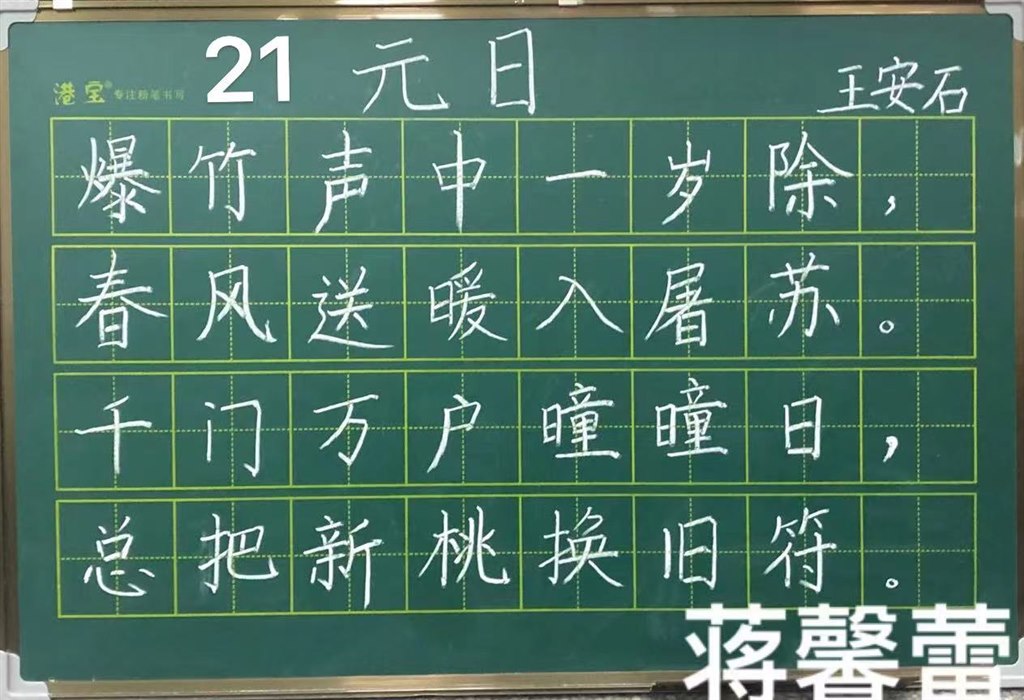 21 元日
港宝® 专注粉笔书房
王安石
爆竹声中一岁除,
春风送暖入屠苏。
千门万户曈曈日,
总把新桃换旧符。
蒋馨蕾